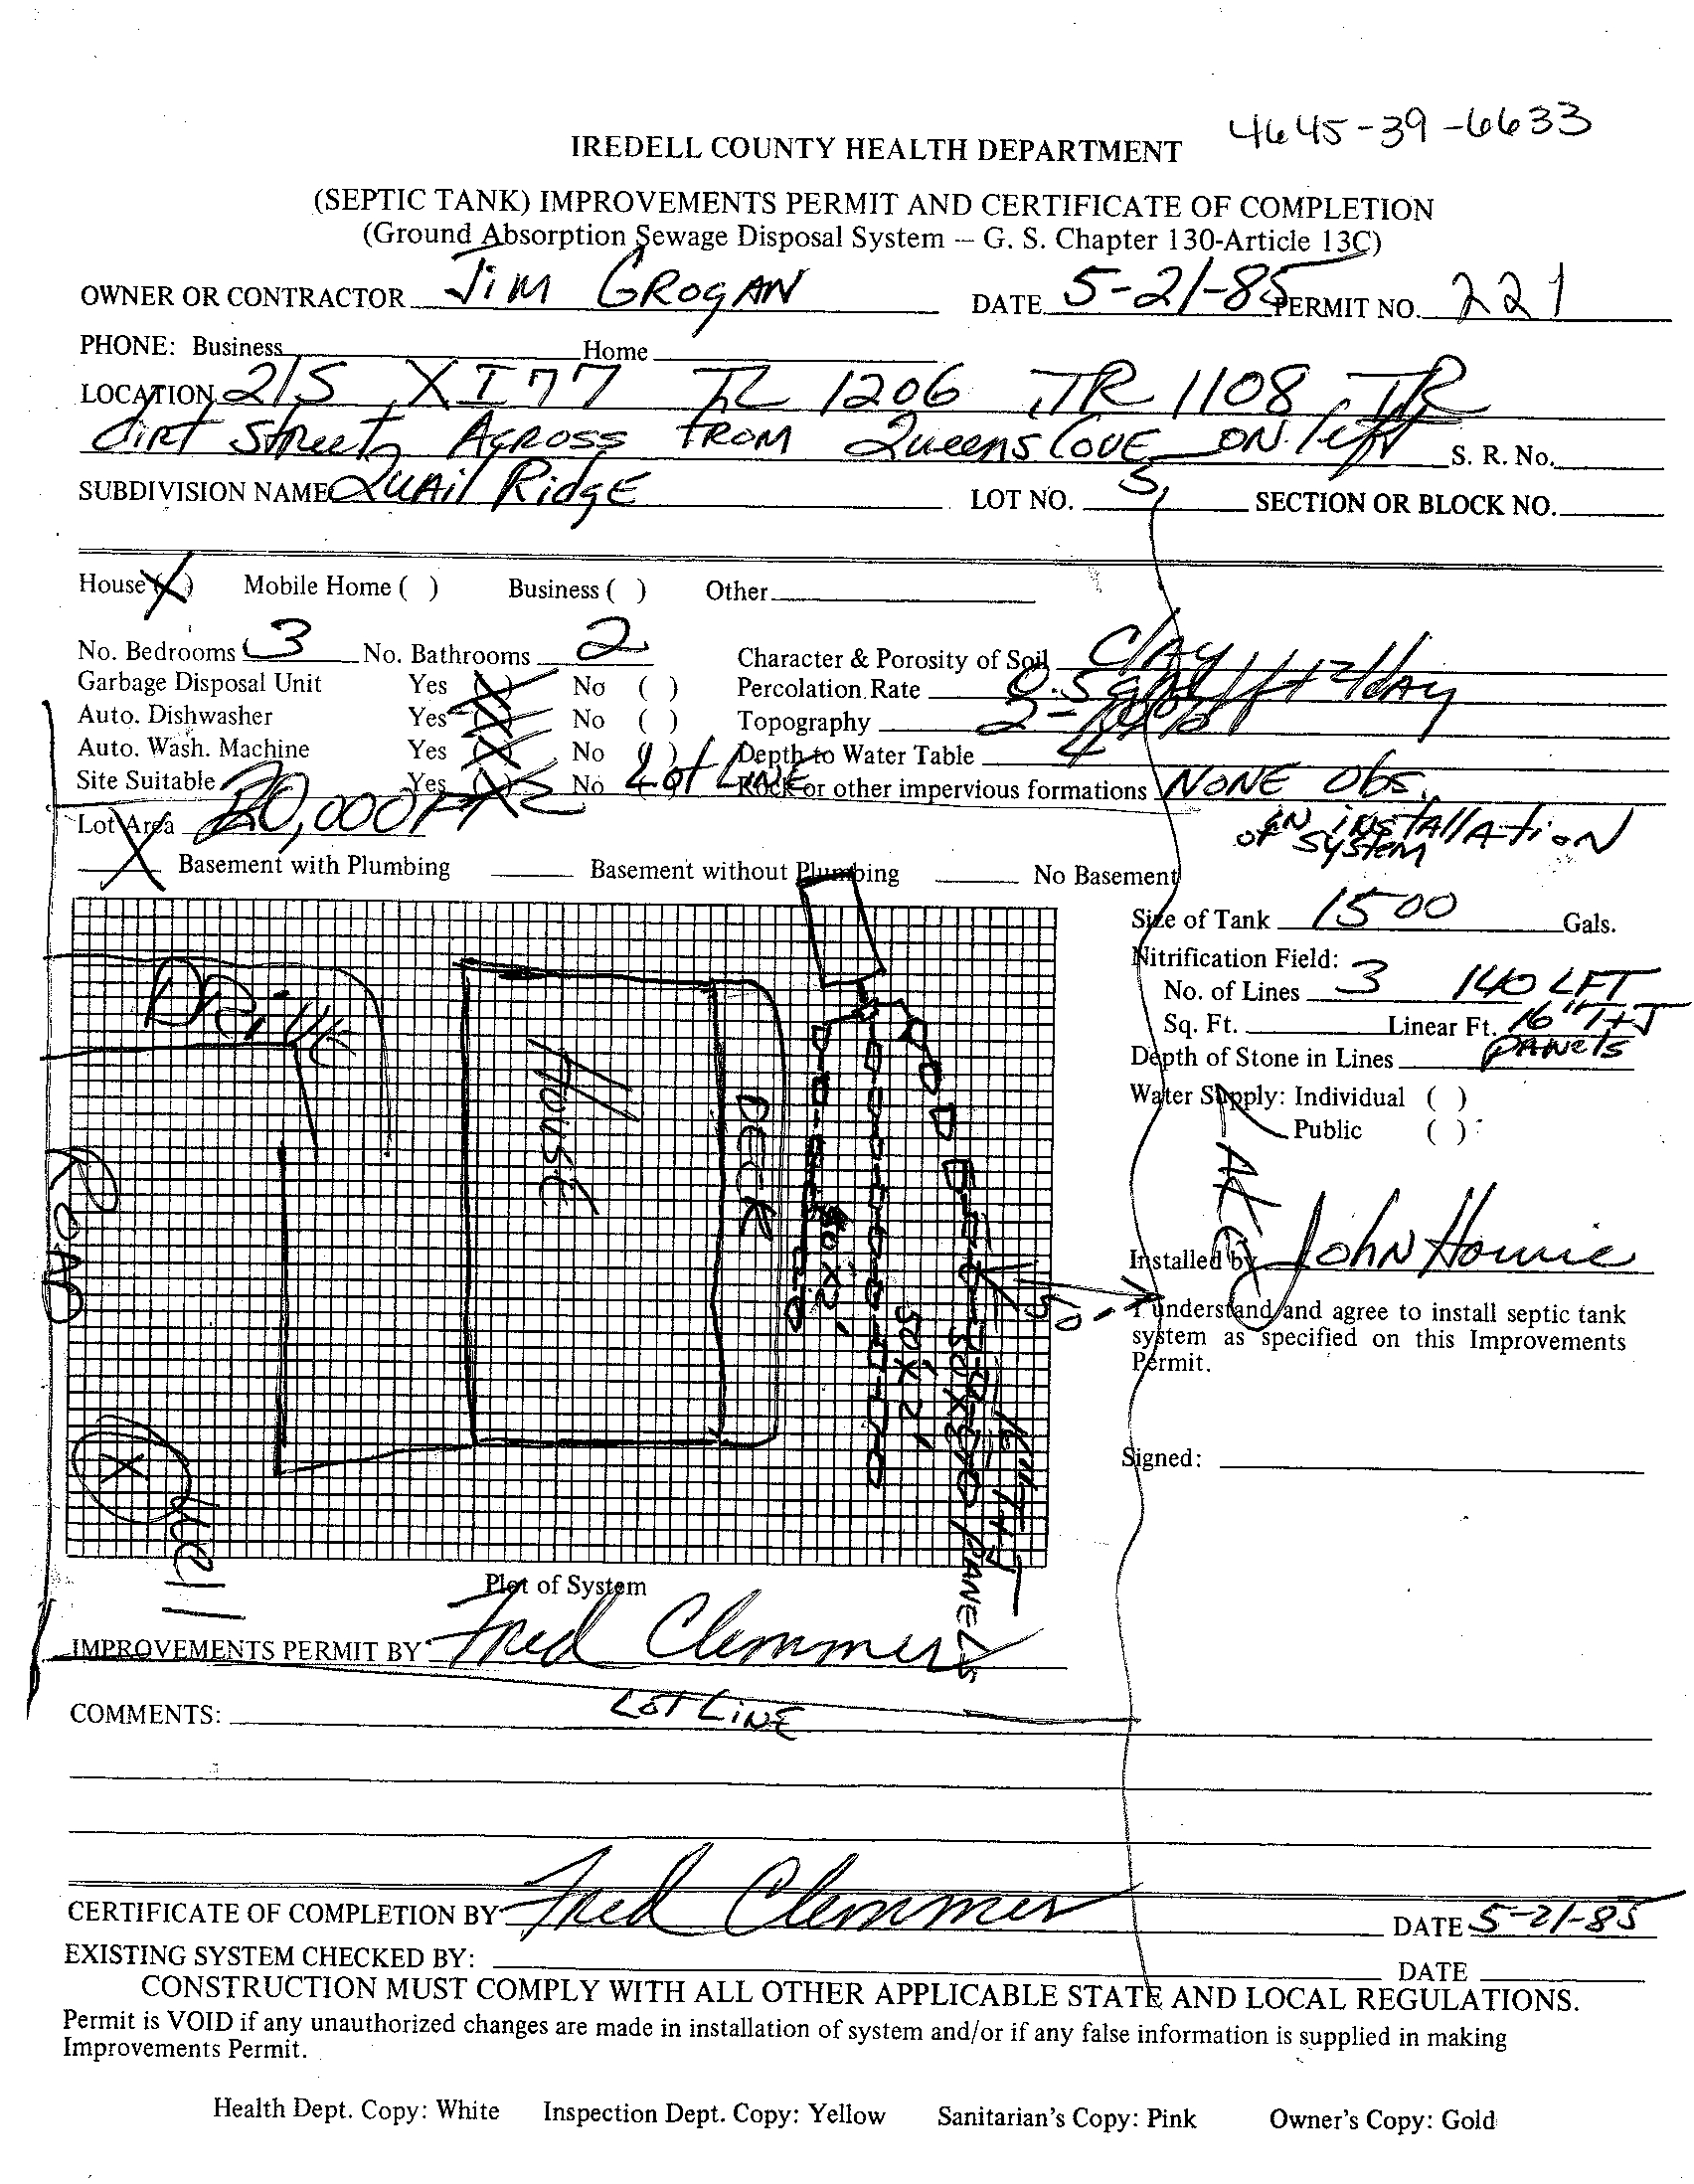 4645-39-6633
IREDELL COUNTY HEALTH DEPARTMENT
(SEPTIC TANK) IMPROVEMENTS PERMIT AND CERTIFICATE OF COMPLETION
(Ground Absorption Sewage Disposal System — G. S. Chapter 130-Article 13C)
OWNER OR CONTRACTOR JiM GROgAN DATE 5-21-85 PERMIT NO. 221
PHONE: Business Home
LOCATION 21S X I77 TL 1206 TR 1108 TR
dirt Street ACROSS FROM Queens COVE ON left S. R. No.
SUBDIVISION NAME QUAil RidgE LOT NO. 5 SECTION OR BLOCK NO.
House (X) Mobile Home ( ) Business ( ) Other
No. Bedrooms 3 No. Bathrooms 2 Character & Porosity of Soil ClAy
Garbage Disposal Unit Yes (X) No ( ) Percolation Rate 0.5 gal/ft2/dAy
Auto. Dishwasher Yes (X) No ( ) Topography 2-
Auto. Wash. Machine Yes (X) No ( ) Depth to Water Table
Site Suitable Yes (X) No ( ) Lot LiNE Rock or other impervious formations NONE Obs.
Lot Area 20,000 FT2 iN iNstAllAtioN
of System
X Basement with Plumbing Basement without Plumbing No Basement
Size of Tank 1500 Gals.
Nitrification Field:
No. of Lines 3 140 LFT
Sq. Ft. Linear Ft. 16" T+J
Depth of Stone in Lines PANEls
Water Supply: Individual ( )
Public ( )
Drive
House
DECK
ROAD
50x2'
PANELS
16" T+J
50'
LAKE
Installed by John Howie
I understand and agree to install septic tank
system as specified on this Improvements
Permit.
Signed:
X
well
Plot of System
IMPROVEMENTS PERMIT BY Fred Clemmer
COMMENTS: LOT LiNE
CERTIFICATE OF COMPLETION BY Fred Clemmer DATE 5-21-85
EXISTING SYSTEM CHECKED BY: DATE
CONSTRUCTION MUST COMPLY WITH ALL OTHER APPLICABLE STATE AND LOCAL REGULATIONS.
Permit is VOID if any unauthorized changes are made in installation of system and/or if any false information is supplied in making
Improvements Permit.
Health Dept. Copy: White Inspection Dept. Copy: Yellow Sanitarian's Copy: Pink Owner's Copy: Gold